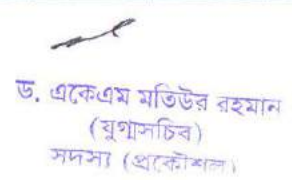 ড. একেএম মতিউর রহমান
(যুগ্মসচিব)
সদস্য (প্রকৌশল)